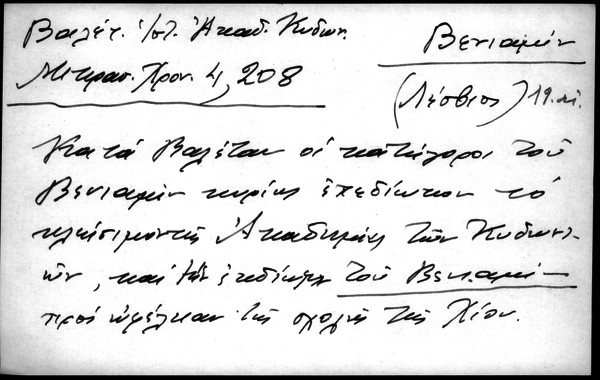 Βαλέτ. Ἱστ. Ἀκαδ. Κυδων.
Μικρασ. Χρον. 4, 208
Βενιαμίν
(Λέσβιος) 19. αἰ.
Κατά Βαλέταν οἱ κατήγοροι τοῦ
Βενιαμίν κυρίως ἐπεδίωκον τό
κλείσιμον τῆς Ἀκαδημίας τῶν Κυδωνι-
ῶν, καί τήν ἐκδίωξιν τοῦ Βενιαμί-
πρός ὠφέλειαν τῆς σχολῆς τῆς Χίου.